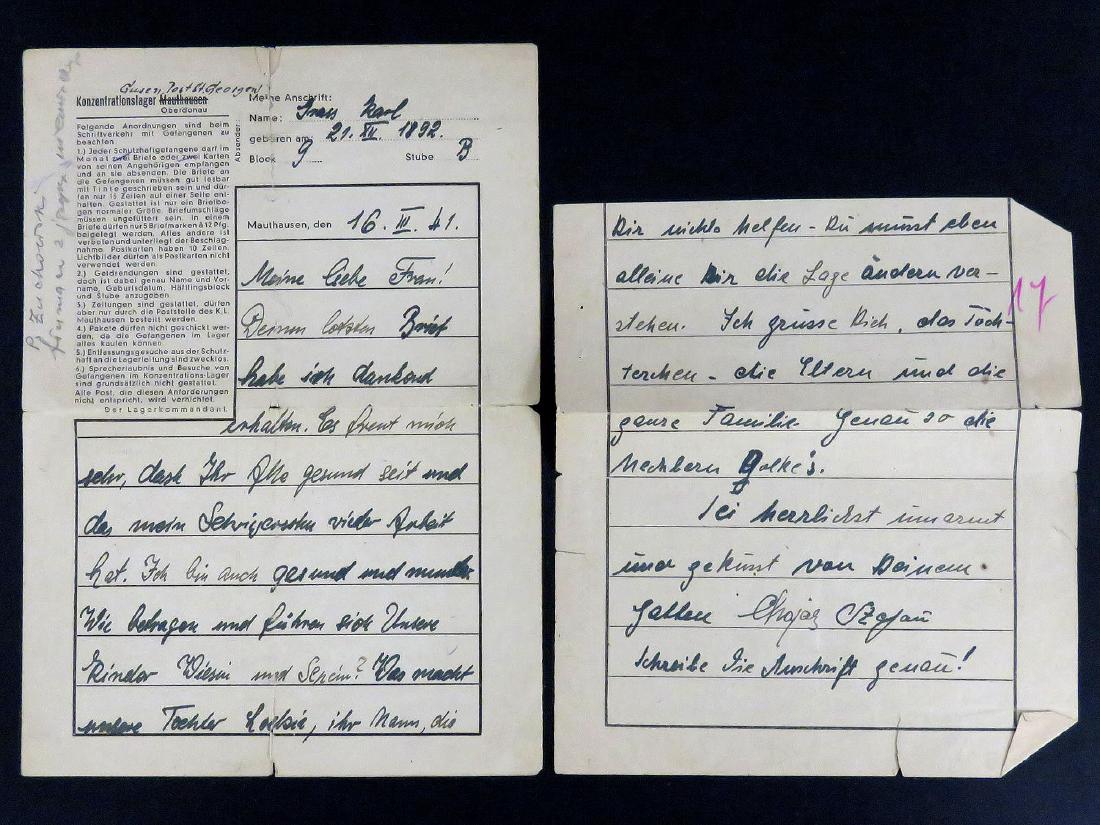 Gusen, Post St. Georgen
Konzentrationslager Mauthausen
Oberdonau
Folgende Anordnungen sind beim
Schriftverkehr mit Gefangenen zu
beachten:
1.) Jeder Schutzhaftgefangene darf im
Monat zwei Briefe oder zwei Karten
von seinen Angehörigen empfangen
und an sie absenden. Die Briefe an
die Gefangenen müssen gut lesbar
mit Tinte geschrieben sein und dür-
fen nur 15 Zeilen auf einer Seite ent-
halten. Gestattet ist nur ein Briefbo-
gen normaler Größe. Briefumschläge
müssen ungefüttert sein. In einem
Briefe dürfen nur 5 Briefmarken à 12 Pfg.
beigelegt werden. Alles andere ist
verboten und unterliegt der Beschlag-
nahme. Postkarten haben 10 Zeilen.
Lichtbilder dürfen als Postkarten nicht
verwendet werden.
2.) Geldsendungen sind gestattet,
doch ist dabei genau Name und Vor-
name, Geburtsdatum, Häftlingsblock
und Stube anzugeben.
3.) Zeitungen sind gestattet, dürfen
aber nur durch die Poststelle des K.L.
Mauthausen bestellt werden.
4.) Pakete dürfen nicht geschickt wer-
den, da die Gefangenen im Lager
alles kaufen können.
5.) Entlassungsgesuche aus der Schutz-
haft an die Lagerleitung sind zwecklos.
6.) Sprecherlaubnis und Besuche von
Gefangenen im Konzentrations-Lager
sind grundsätzlich nicht gestattet.
Alle Post, die diesen Anforderungen
nicht entspricht, wird vernichtet.
Der Lagerkommandant.
Absender:
Meine Anschrift:
Name: Karl
geboren am: 21. XII. 1892.
Block 9 Stube B
Mauthausen, den 16. III. 41.
Meine liebe Frau!
Deinen letzten Brief
habe ich dankend
erhalten. Es freut mich
sehr, dash Ihr Alle gesund seit und
das mein Schwigersohn wieder Arbeit
hat. Ich bin auch gesund und munter.
Wie betragen und führen sich Unsere
Kinder und ? Was macht
unsere Tochter , ihr Mann, die
Dir nichts helfen – Du musst eben
alleine Dir die Lage ändern ver-
stehen. Ich grüsse Dich, das Töch-
terchen – die Eltern und die
ganze Familie. Genau so die
Nechbern Golke's.
Sei herrlichst umarmt
und geküsst von Deinem
Gatten
Schreibe Die Anschrift genau!
17